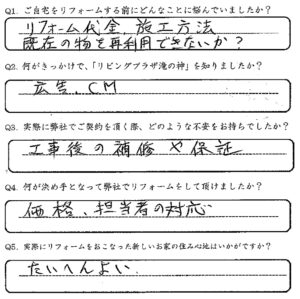 Q1. ご自宅をリフォームする前にどんなことに悩んでいましたか?
リフォーム代金、施工方法
既在の物を再利用できないか?
Q2. 何がきっかけで、「リビングプラザ滝の神」を知りましたか?
広告、CM
Q3. 実際に弊社でご契約を頂く際、どのような不安をお持ちでしたか?
工事後の補修や保証
Q4. 何が決め手となって弊社でリフォームをして頂けましたか?
価格、担当者の対応
Q5. 実際にリフォームをおこなった新しいお家の住み心地はいかがですか?
たいへんよい.